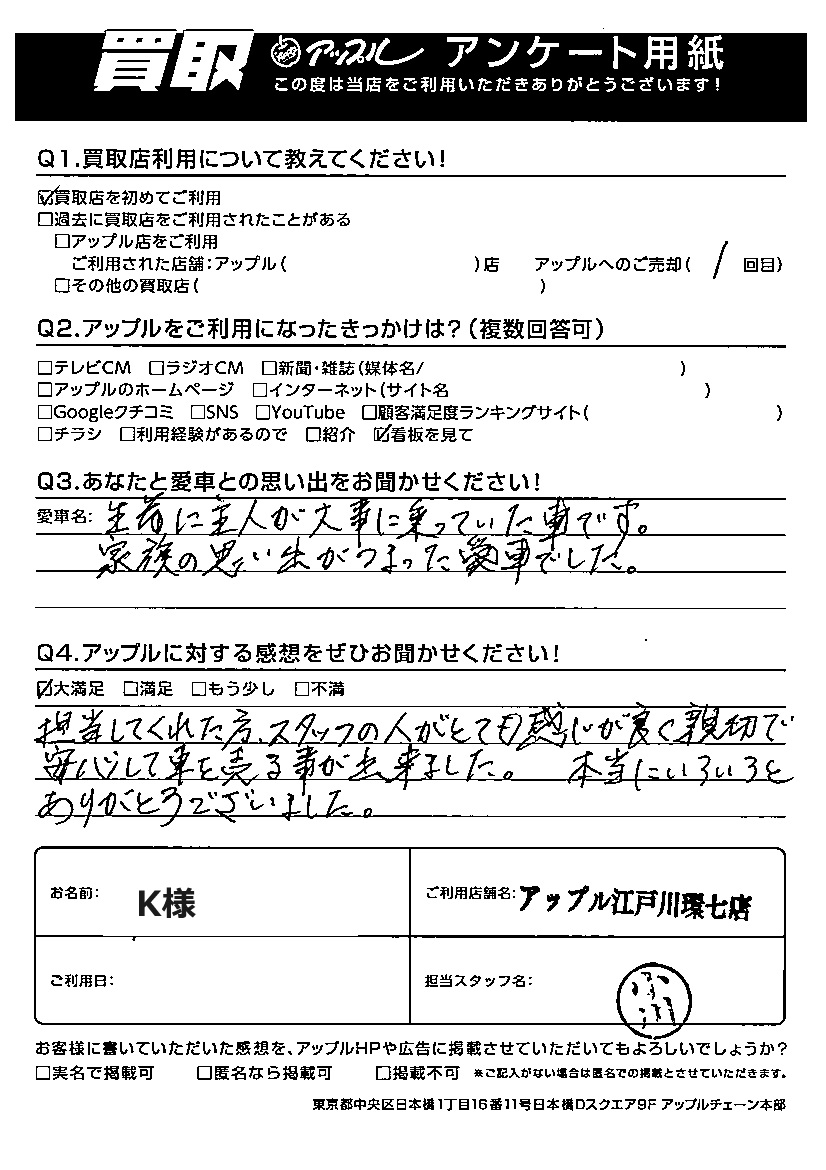 買取 アップル アンケート用紙
この度は当店をご利用いただきありがとうございます!
Q1.買取店利用について教えてください!
☑買取店を初めてご利用
□過去に買取店をご利用されたことがある
□アップル店をご利用
ご利用された店舗:アップル( )店 アップルへのご売却( / 回目)
□その他の買取店( )
Q2.アップルをご利用になったきっかけは?(複数回答可)
□テレビCM □ラジオCM □新聞・雑誌(媒体名/ )
□アップルのホームページ □インターネット(サイト名 )
□Googleクチコミ □SNS □YouTube □顧客満足度ランキングサイト( )
□チラシ □利用経験があるので □紹介 ☑看板を見て
Q3.あなたと愛車との思い出をお聞かせください!
愛車名: 生前に主人が大事に乗っていた車です。
家族の思い出がつまった愛車でした。
Q4.アップルに対する感想をぜひお聞かせください!
☑大満足 □満足 □もう少し □不満
担当してくれた方、スタッフの人がとても感じが良く親切で
安心して車を売る事が出来ました。 本当にいろいろと
ありがとうございました。
お名前: K様 ご利用店舗名:アップル江戸川環七店
ご利用日: 担当スタッフ名: 小川
お客様に書いていただいた感想を、アップルHPや広告に掲載させていただいてもよろしいでしょうか?
□実名で掲載可 □匿名なら掲載可 □掲載不可 ※ご記入がない場合は匿名での掲載とさせていただきます。
東京都中央区日本橋1丁目16番11号日本橋Dスクエア9F アップルチェーン本部